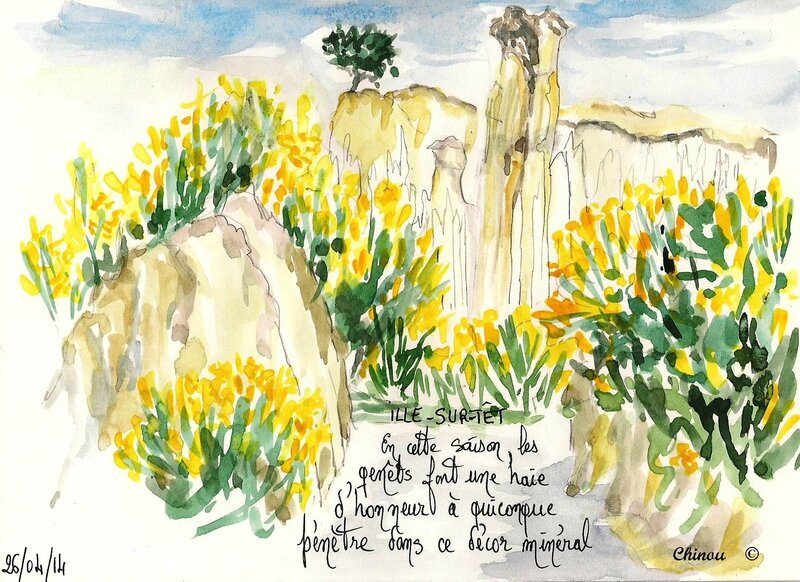 ILLE-SUR-TÊT
En cette saison, les
genêts font une haie
d'honneur à quiconque
pénètre dans ce décor minéral
Chinou ©
26/04/14